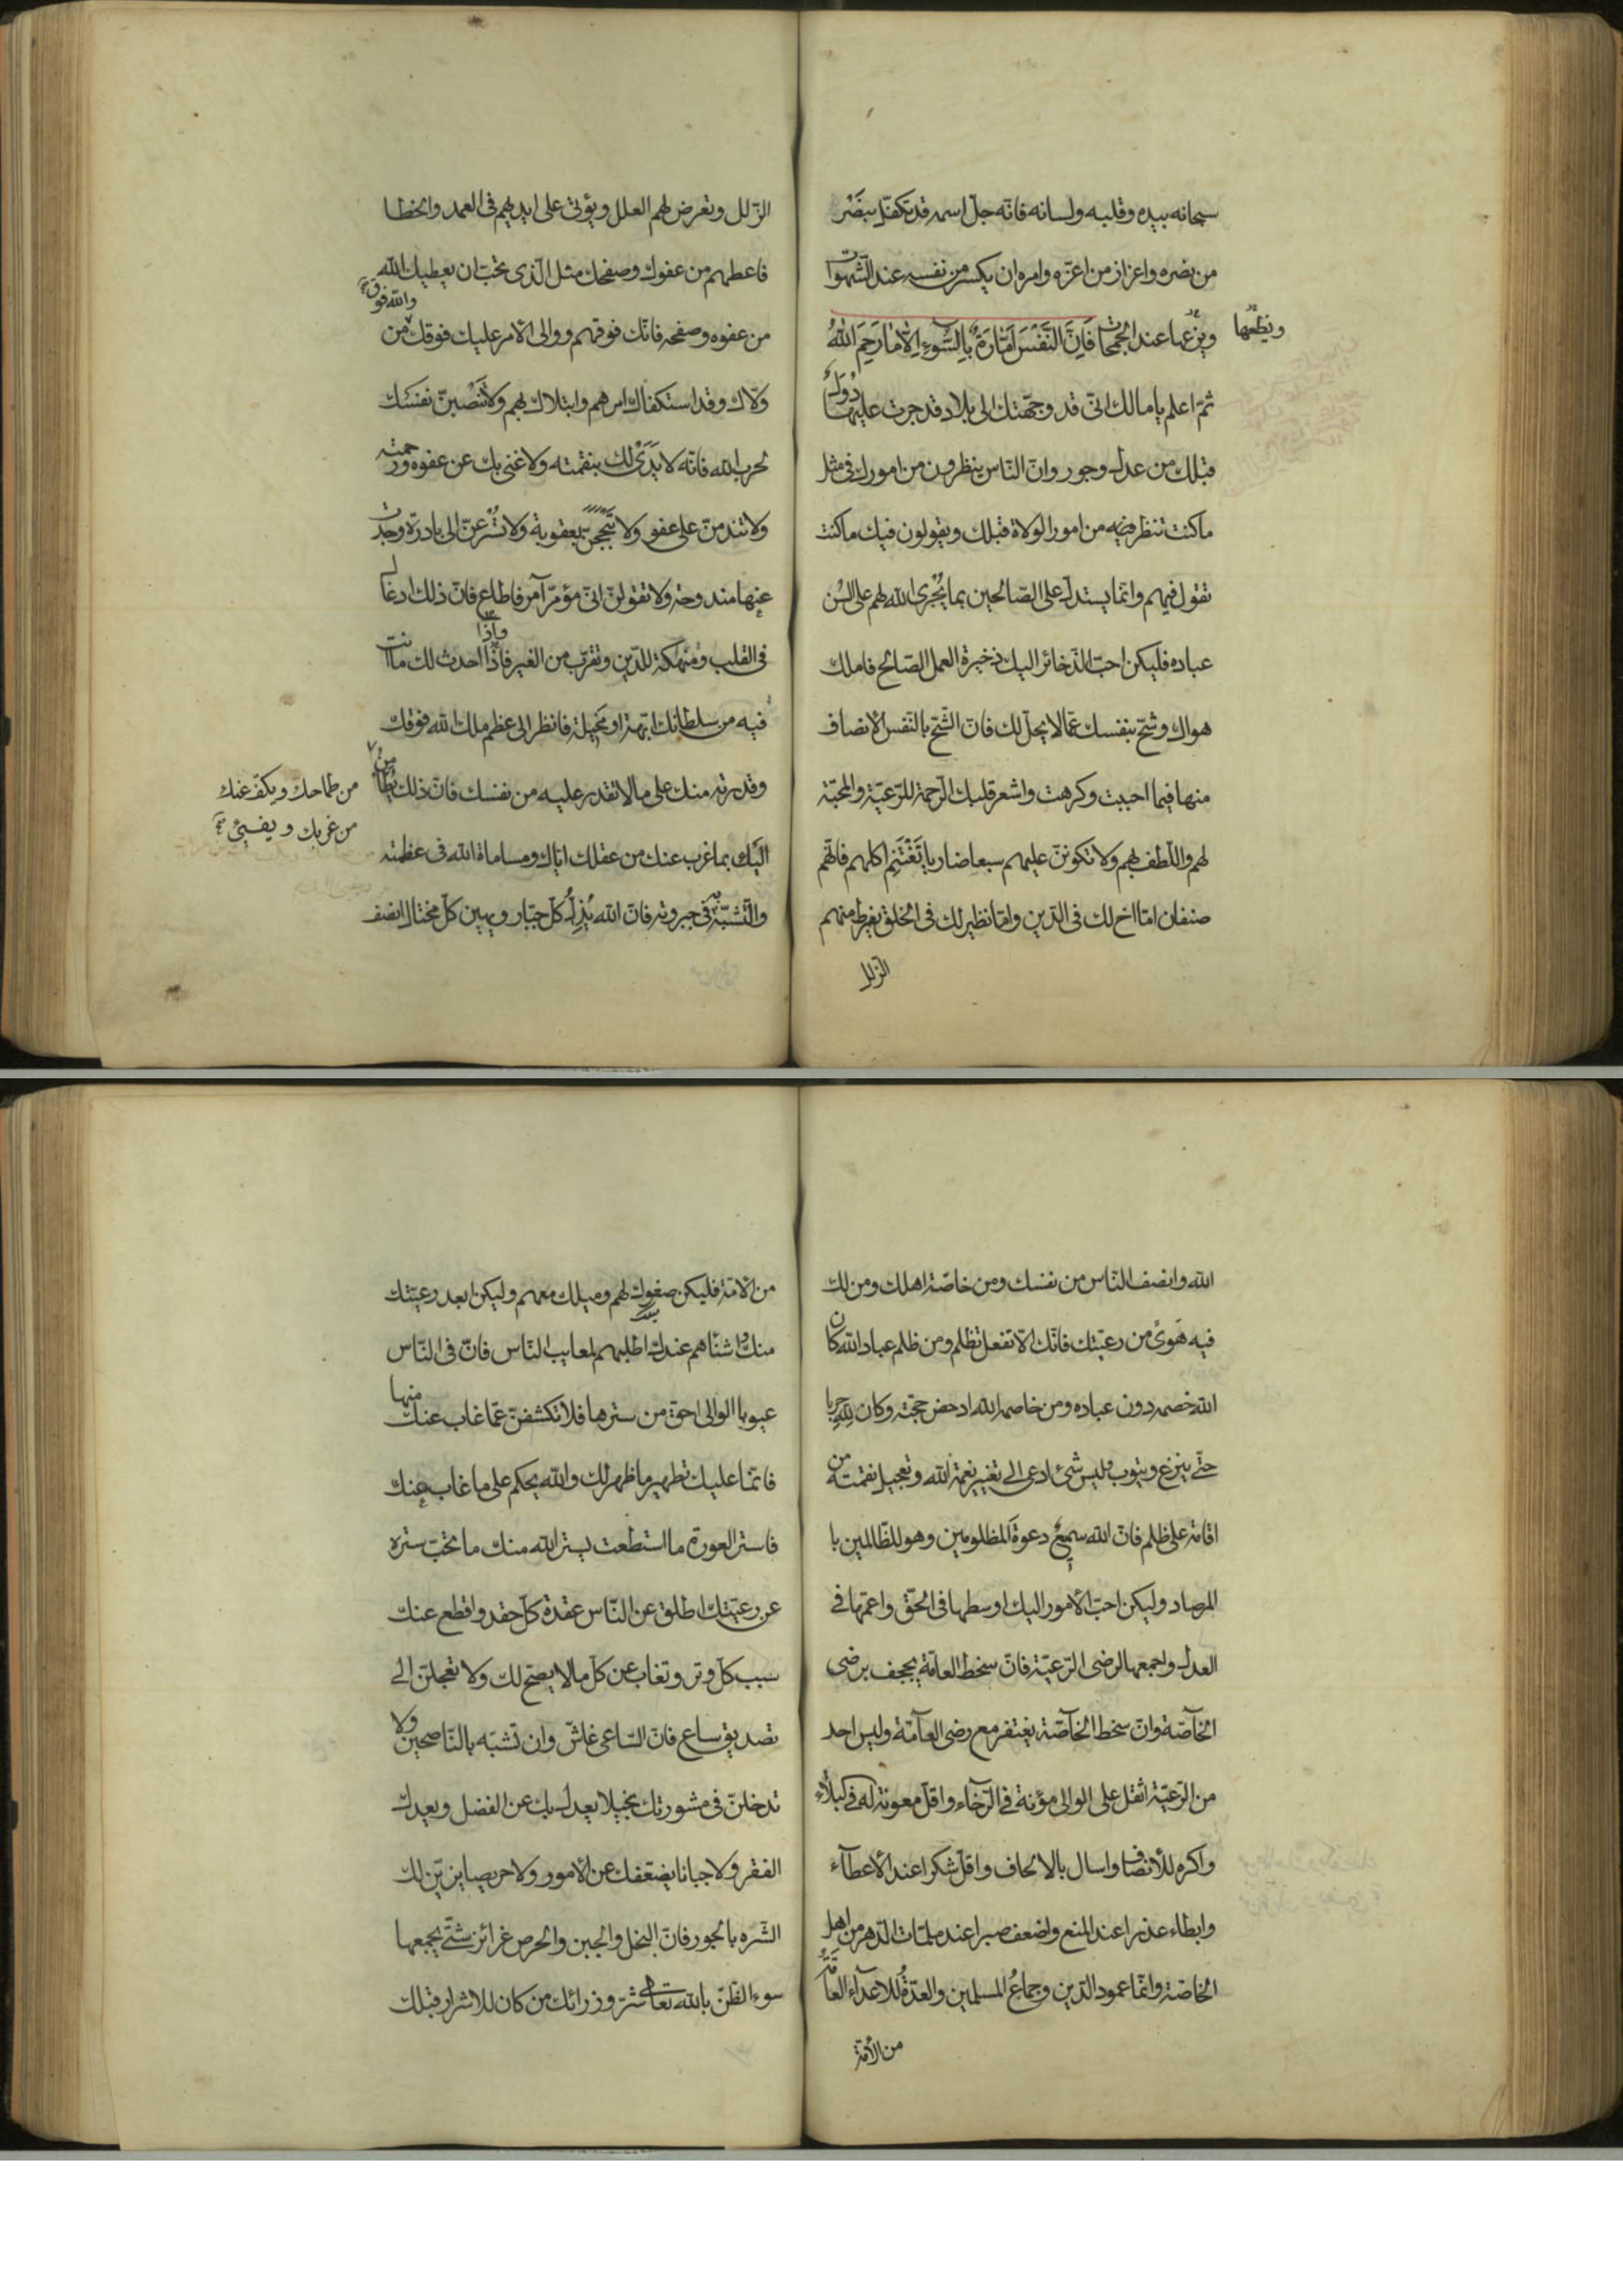 سبحانه بيده وقلبه ولسانه فانّه جلّ اسمه قد تكفّل بنصر
من نصره واعزاز من اعزّه وامره ان يكسر من نفسه عند الشّهوات
ويزعها عند الجمحات فَاِنَّ النَّفْسَ اَمَّارَةٌ بِالسُّوءِ اِلَّا مَا رَحِمَ اللهُ
ونظعها
ثمّ اعلم يا مالك انّى قد وجّهتك الى بلاد قد جرت عليها دُوَل
قبلك من عدل وجور وانّ النّاس ينظرون من امورك فى مثل
ما كنت تنظر فيه من امور الولاة قبلك ويقولون فيك ما كنت
تقول فيهم وانّما يستدلّ على الصّالحين بما يُجرى الله لهم على السُن
عباده فليكن احبّ الذّخائر اليك ذخيرة العمل الصّالح فاملك
هواك وشحّ بنفسك عمّا لا يحلّ لك فانّ الشّحّ بالنّفس الانصاف
منها فيما احببت وكرهت واشعر قلبك الرّحمة للرّعيّة والمحبّة
لهم واللّطف بهم ولا تكوننّ عليهم سبعا ضاريا تَغْتَنِم اكلهم فانّهم
صنفان امّا اخ لك فى الدّين وامّا نظير لك فى الخلق يفرط منهم
الزلل
الزّلل وتعرض لهم العلل ويؤتى على ايديهم فى العمد والخطا
فاعطهم من عفوك وصفحك مثل الّذى تحبّ ان يعطيك الله
من عفوه وصفحه فانّك فوقهم ووالى الأمر عليك فوقك من
والله فوق
ولّاك وقد استكفاك امرهم وابتلاك بهم ولا تَنْصبنّ نفسك
لحرب الله فانّه لا يَدَىْ لك بنقمته ولا غنى بك عن عفوه ورحمته
ولا تندمنّ على عفو ولا تبجحنّ بعقوبة ولا تُسْرعنّ الى بادرة وجدت
عنها مندوحة ولا تقولنّ انّى مؤمّر آمر فاطاع فانّ ذلك ادغال
فى القلب ومنهكة للدّين وتقرّب من الغير فاذا احدث لك ما انت
واذا
فيه من سلطانك ابّهة او مَخِيلة فانظر الى عظم ملك الله فوقك
وقدرته منك على ما لا تقدر عليه من نفسك فانّ ذلك يُطامن
من طماحك ويكفّ عنك
من غربك ويفيئ
اليك بما غرب عنك من عقلك ايّاك ومساماة الله فى عظمته
والتّشبّه فى جبروته فانّ الله يُذِلُّ كلّ جبّار ويهين كلّ مختال انصف
الله وانصف النّاس من نفسك ومن خاصّة اهلك ومن لك
فيه هَوىً من رعيّتك فانّك الّا تفعل تظلم ومن ظلم عباد الله كان
الله خصمه دون عباده ومن خاصمه الله ادحض حجته وكان لِلّهِ حربا
حتّى ينزع ويتوب فليس شئ ادعى الى تغيير نعمة الله وتعجيل نقمته من
اقامة على ظلم فانّ الله سميع دعوة المظلومين وهو للظّالمين با
لمرصاد وليكن احبّ الأمور اليك اوسطها فى الحقّ واعمّها فى
العدل واجمعها لرضى الرّعيّة فانّ سخط العامّة يجحف برضى
الخآصّة وانّ سخط الخآصّة يغتفر مع رضى العآمّة وليس احد
من الرّعيّة اثقل على الوالى مؤنة فى الرّخاء واقلّ معونة له فى البلآء
واكره للأنصاف واسال بالالحاف واقلّ شكرا عند الأعطآء
وابطاء عذرا عند المنع واضعف صبرا عند ملمّات الدّهر من اهل
الخاصّة وانّما عمود الدّين وجماعُ المسلمين والعدّةُ للاعدآء العامّة
من الأمّة
من الأمّة فليكن صغوك لهم وميلك معهم وليكن ابعد رعيّتك
منك واشناهم عندك اطلبهم لمعايب النّاس فانّ فى النّاس
عيوبا الوالى احق من سترها فلا تكشفنّ عمّا غاب عنك منها
فانّما عليك تطهير ما ظهر لك والله يحكم على ما غاب عنك
فاستر العورة ما استطعت يستر الله منك ما تحبّ ستره
عن رعيّتك اطلق عن النّاس عقدة كلّ حقد واقطع عنك
سبب كلّ وتر وتغاب عن كلّ ما لا يصحّ لك ولا تعجلنّ الى
تصديق ساع فانّ السّاعى غاشّ وان تشبّه بالنّاصحين ولا
تدخلنّ فى مشورتك بخيلا يعدل بك عن الفضل ويعدك
الفقر ولا جبانا يضعّفك عن الأمور ولا حريصا يزيّن لك
الشّره بالجور فانّ البخل والجبن والحرص غرائز شتّى يجمعها
سوء الظّنّ بالله تعالى شرّ وزرائك من كان للاشرار قبلك